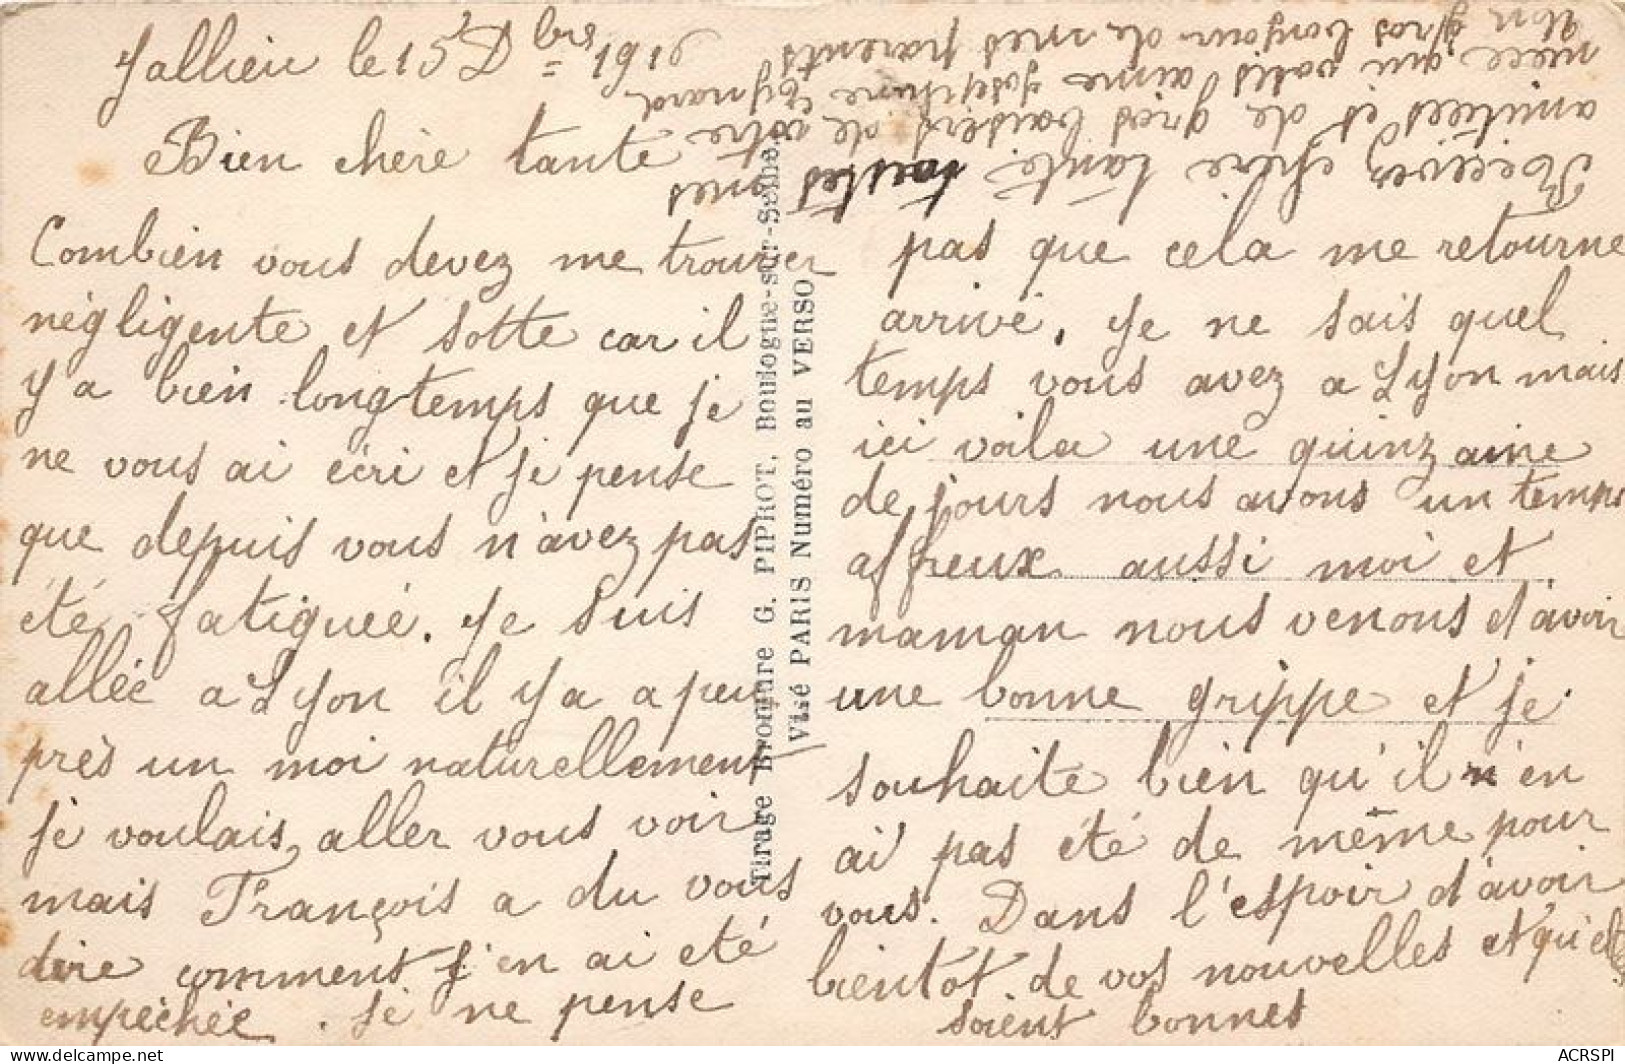 Jallieu le 15 Dbre 1916
Bien chère tante
Combien vous devez me trouver
négligente et sotte car il
y a bien longtemps que je
ne vous ai écri et je pense
que depuis vous n'avez pas
été fatiguée. Je suis
allée a Lyon il y a a peu
près un moi naturellement
je voulais aller vous voir
mais François a du vous
dire comment j'en ai été
empéchée. Je ne pense
pas que cela me retourne
arrivé. Je ne sais quel
temps vous avez a Lyon mais
ici voila une quinzaine
de jours nous avons un temps
affreux aussi moi et
maman nous venons d'avoir
une bonne grippe et je
souhaite bien qu'il n'en
ai pas été de même pour
vous. Dans l'espoir d'avoir
bientot de vos nouvelles et qu'elles
soient bonnes
Recevez chère tante toutes mes
amitiées et de gros baisers de votre
nièce qui vous aime Joséphine
Un gros bonjour de mes parents
Tirage Bromure G. PIPROT, Boulogne-sur-Seine.
Visé PARIS Numéro au VERSO
ACRSPI